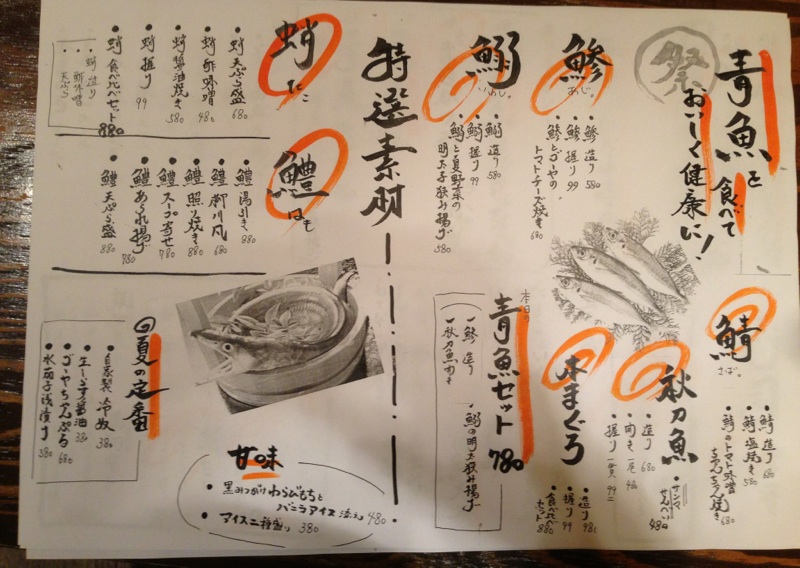 青魚を食べて
おいしく健康に!
祭
鯵
あじ。
・鯵 造り 580
・鯵 握り 99
・鯵とゴーヤの
トマトチーズ焼き 680
鰯
いわし。
・鰯 造り 580
・鰯 握り 99
・鰯と夏野菜の
明太子挟み揚げ 580
鯖
さば。
・鯖 造り 680
・鯖 塩焼き 580
・鯖のトマト味噌
ちゃんちゃん焼き 680
秋刀魚
・造り 680
・肉き 一尾
・握り 一貫 99
・サンマ
せんべい 480
本まぐろ
・造り 980
・握り 99
・食べ比べ
セット 880
本日の
青魚セット 780
・鯵 造り
・鰯の明太挟み揚げ
特選素材
蛸 たこ
・蛸 天ぷら盛 680
・蛸 酢味噌 480
・蛸 醤油焼き 580
・蛸 握り 99
・蛸 食べ比べセット 880
・蛸 造り
・酢味噌
・天ぷら
鱧 はも
・鱧 湯引き 880
・鱧 柳川風 680
・鱧 照り焼き 880
・鱧 スープ寄せ 780
・鱧 あられ揚げ 780
・鱧 天ぷら盛 880
夏の定番
・自家製 冷奴 380
・ゴーヤちゃんぷる 680
・水茄子浅漬け 380
甘味
・黒みつがけわらびもちと
バニラアイス 添え 480
・アイス二種盛り 380